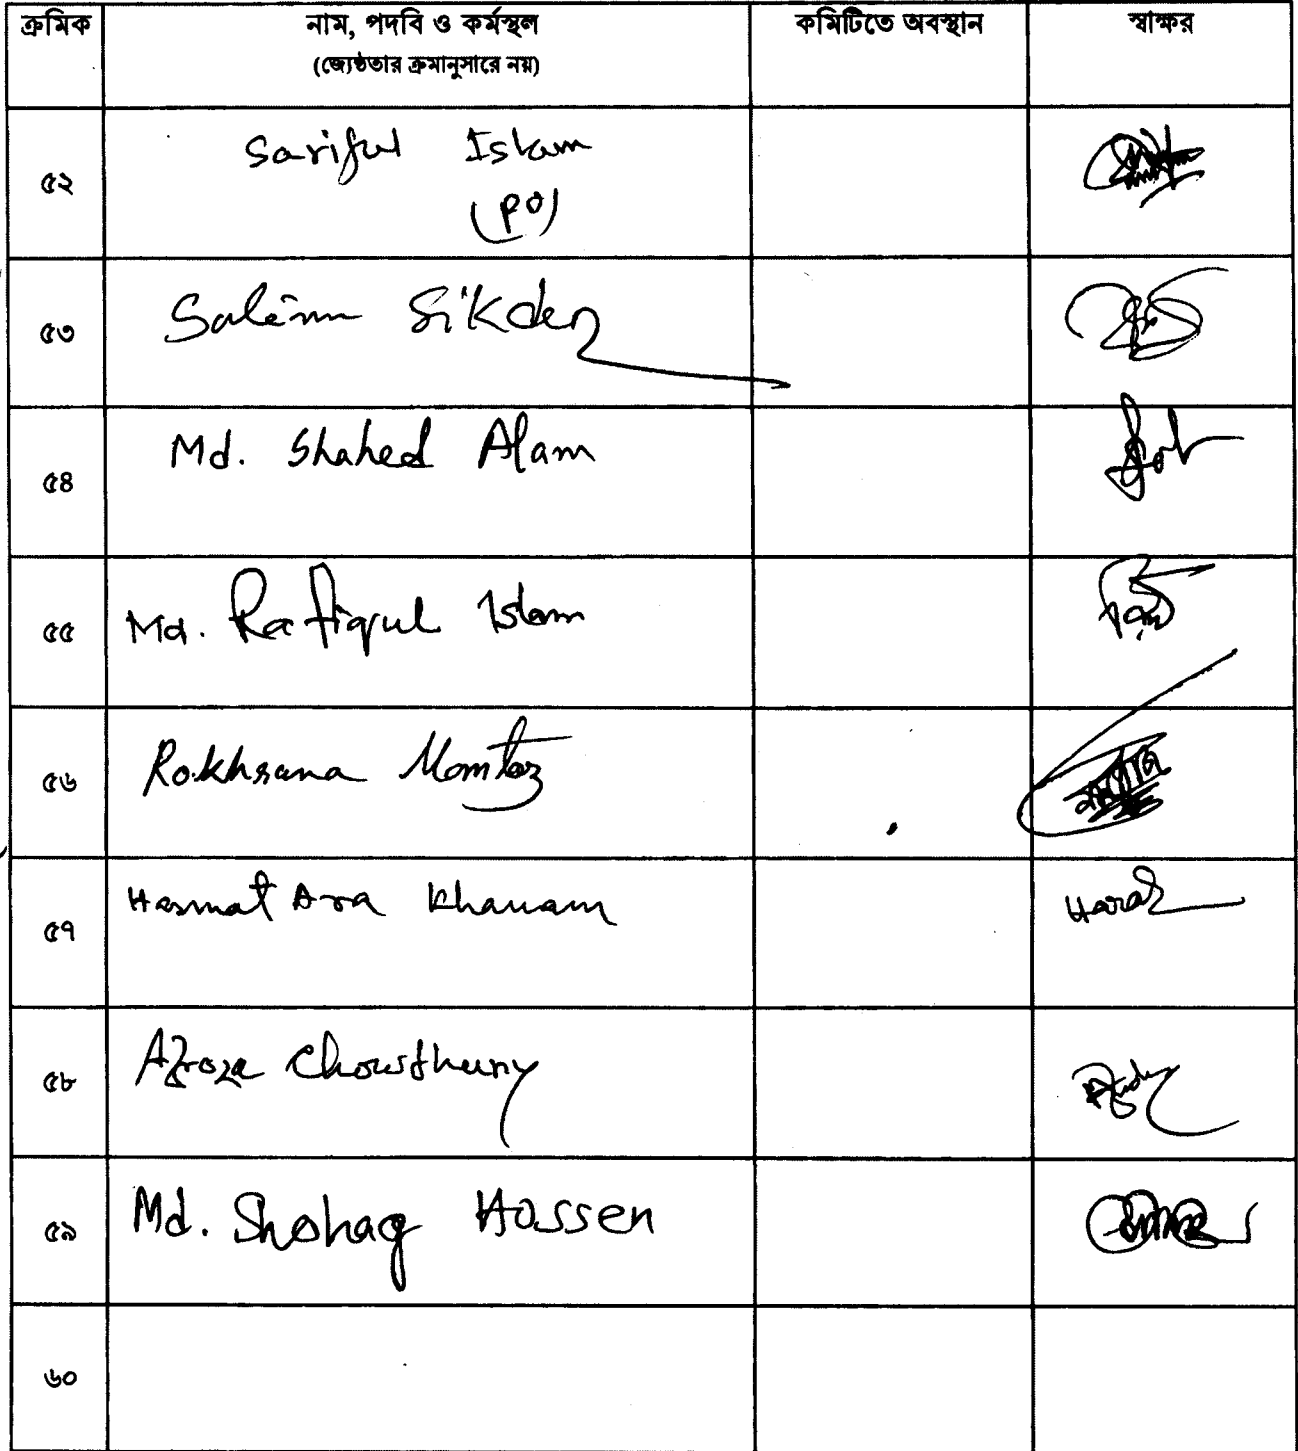 ক্রমিক নাম, পদবি ও কর্মস্থল কমিটিতে অবস্থান স্বাক্ষর
(জ্যেষ্ঠতার ক্রমানুসারে নয়)
৫২ Sariful Islam
(PO)
৫৩ Salim Sikder
৫৪ Md. Shahed Alam
৫৫ Md. Rafiqul Islam
৫৬ Rokhsana Momtaz
৫৭ Hasmat Ara Khanam
৫৮ Afroza Chowdhury
৫৯ Md. Shohag Hossen
৬০